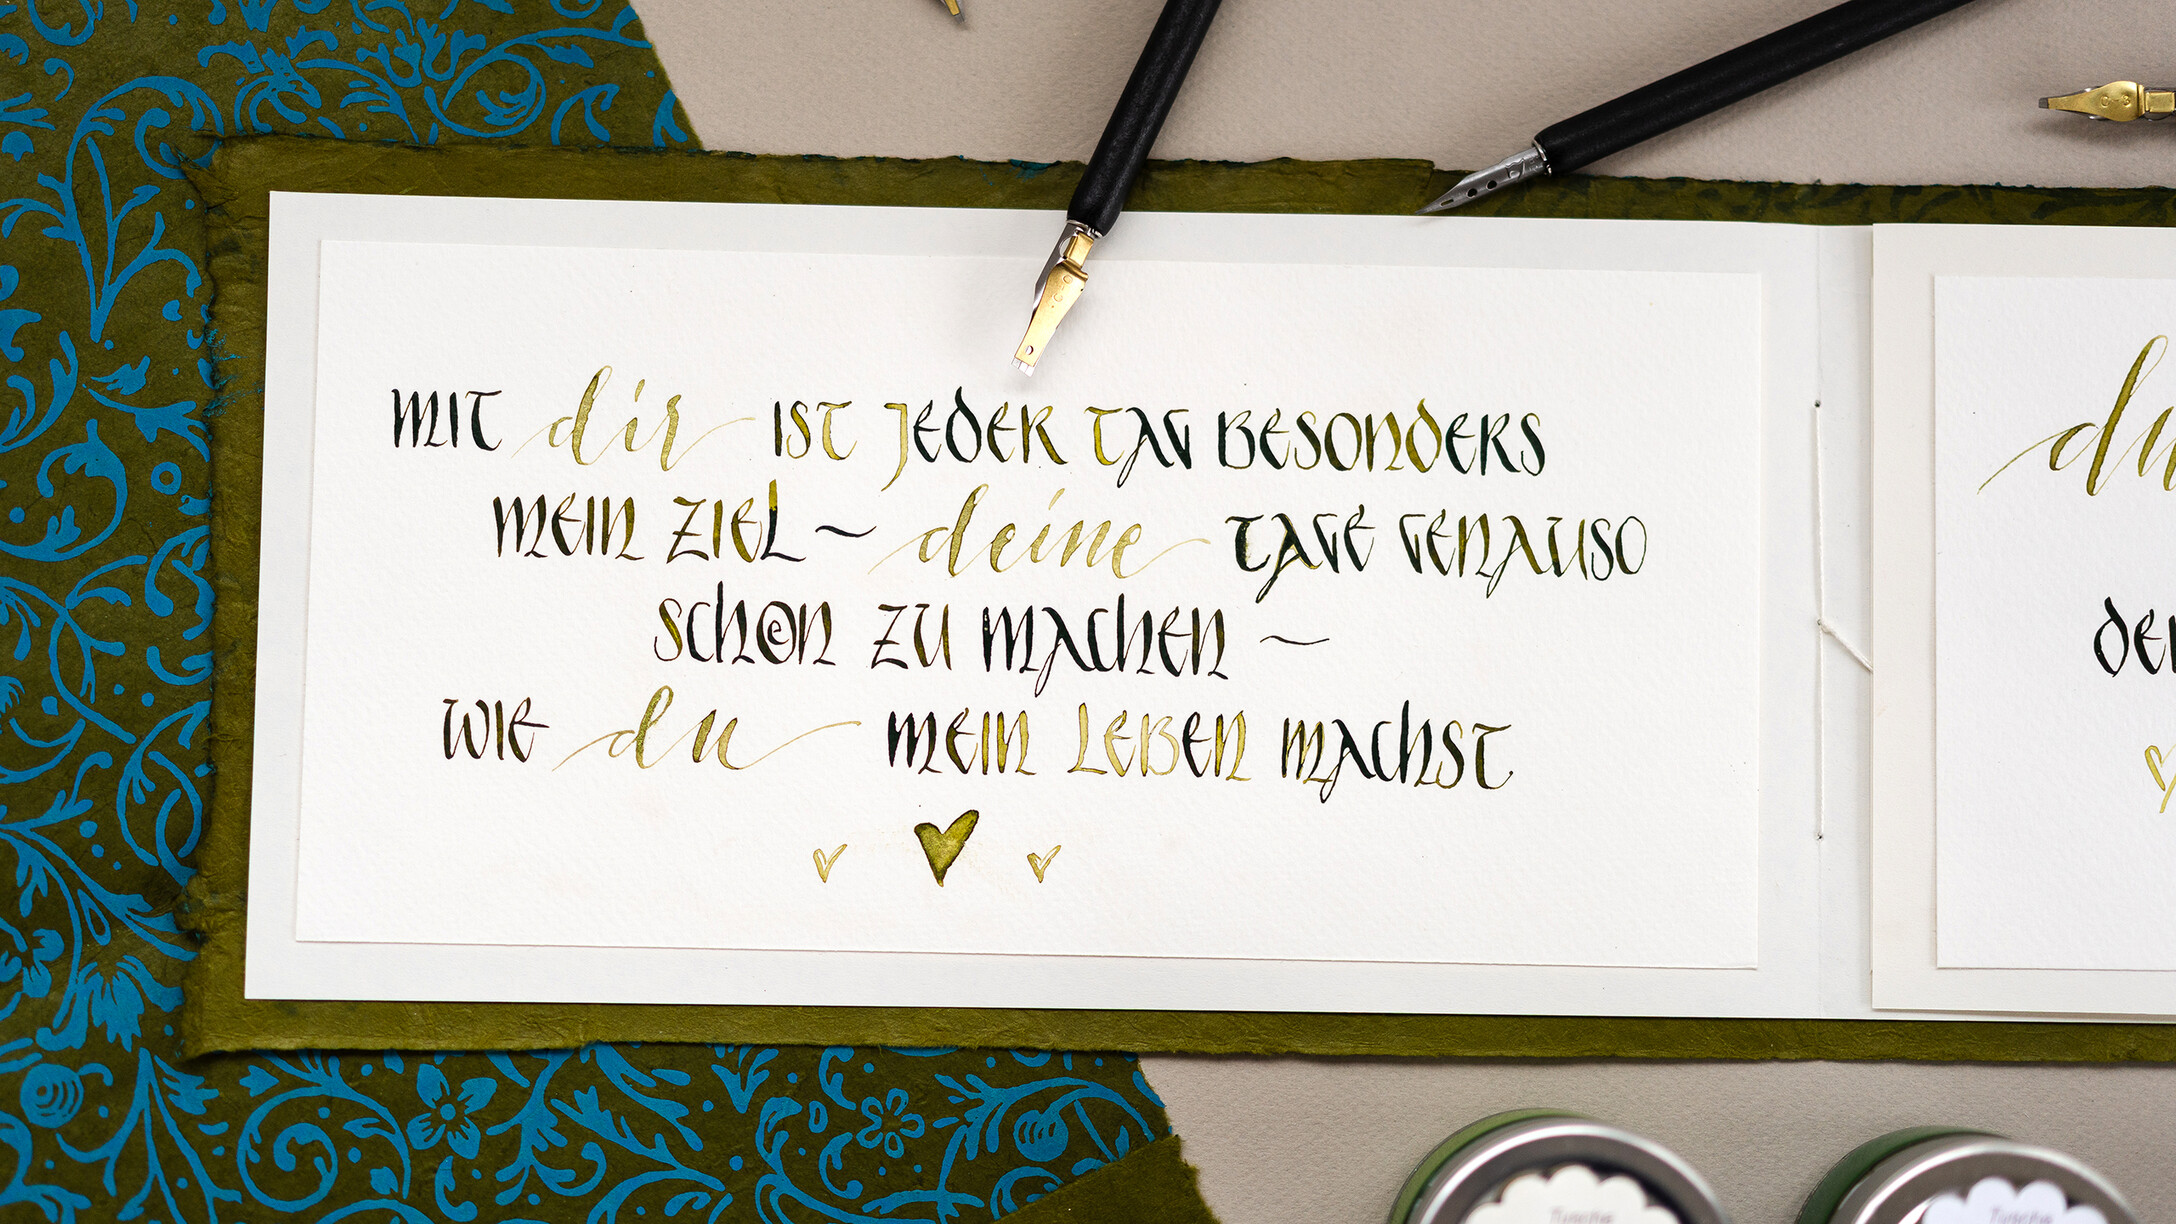 MIT dir IST JEDER TAG BESONDERS
MEIN ZIEL ~ deine TAGE GENAUSO
SCHÖN ZU MACHEN ~
WIE du MEIN LEBEN MACHST
Tusche
Tusche